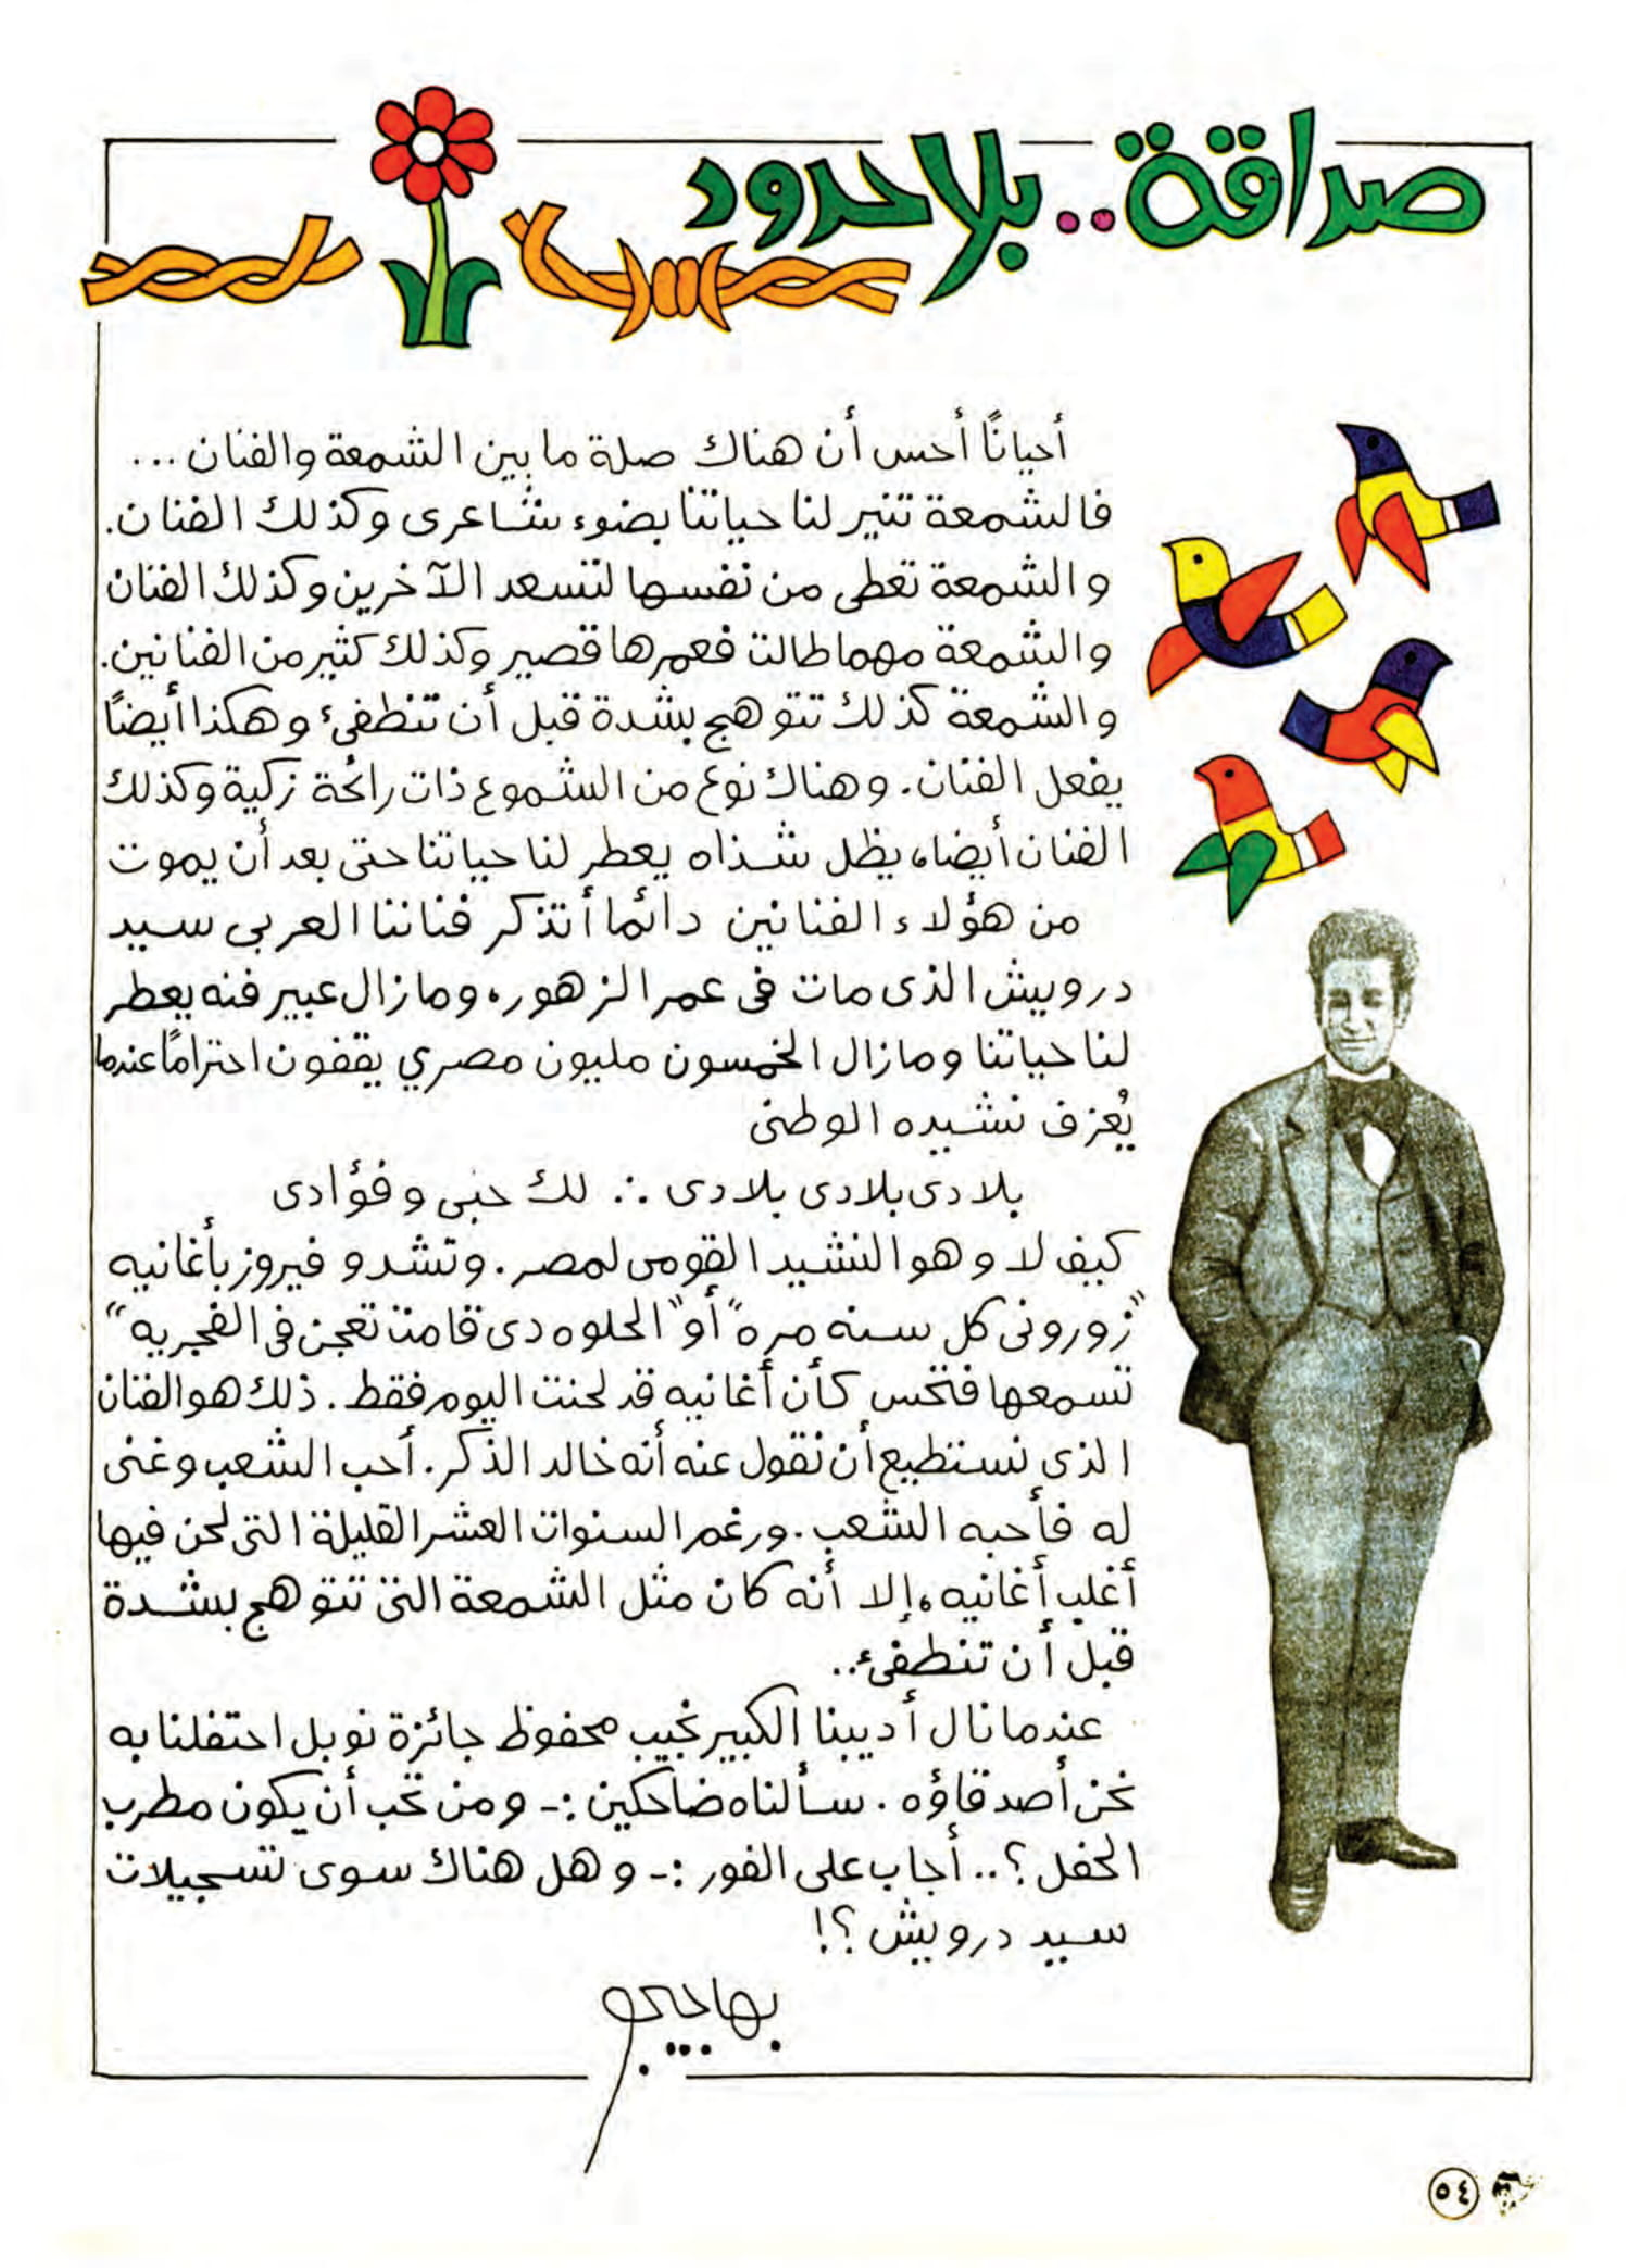 صداقة..بلا حدود
أحيانًا أحس أن هناك صلة ما بين الشمعة والفنان ...
فالشمعة تنير لنا حياتنا بضوء شاعرى وكذلك الفنان.
والشمعة تعطى من نفسها لتسعد الآخرين وكذلك الفنان
والشمعة مهما طالت فعمرها قصير وكذلك كثير من الفنانين.
والشمعة كذلك تتوهج بشدة قبل أن تنطفئ وهكذا أيضًا
يفعل الفنان. وهناك نوع من الشموع ذات رائحة زكية وكذلك
الفنان أيضا، يظل شذاه يعطر لنا حياتنا حتى بعد أن يموت
من هؤلاء الفنانين دائما أتذكر فناننا العربى سيد
درويش الذى مات فى عمر الزهور، ومازال عبير فنه يعطر
لنا حياتنا ومازال الخمسون مليون مصري يقفون احترامًا عندما
يُعزف نشيده الوطنى
بلادى بلادى بلادى ∴ لك حبى وفؤادى
كيف لا وهو النشيد القومى لمصر. وتشدو فيروز بأغانيه
"زورونى كل سنه مره" أو "الحلوه دى قامت تعجن فى الفجريه"
تسمعها فتحس كأن أغانيه قد لحنت اليوم فقط. ذلك هو الفنان
الذى نستطيع أن نقول عنه أنه خالد الذكر. أحب الشعب وغنى
له فأحبه الشعب. ورغم السنوات العشر القليلة التى لحن فيها
أغلب أغانيه، إلا أنه كان مثل الشمعة التى تتوهج بشدة
قبل أن تنطفئ..
عندما نال أديبنا الكبير نجيب محفوظ جائزة نوبل احتفلنا به
نحن أصدقاؤه. سألناه ضاحكين :- ومن تحب أن يكون مطرب
الحفل ؟.. أجاب على الفور :- وهل هناك سوى تسجيلات
سيد درويش ؟!
بهاجيجو
٥٤